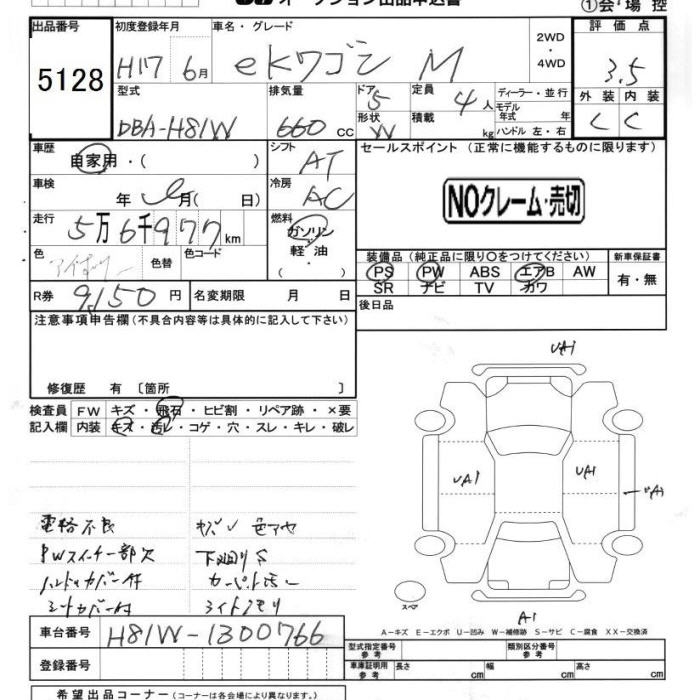 オークション出品申込書
①会場控
出品番号 初度登録年月 車名・グレード 2WD・4WD 評価点
5128 H17 6月 ekワゴン M 3.5
型式 排気量 ドア 5 定員 4人 ディーラー・並行 外装 内装
DBA-H81W 660cc 形状 W 積載 kg モデル年式 年 C C
ハンドル 左・右
車歴 自家用・( ) シフト AT セールスポイント (正常に機能するものに限ります)
車検 年 月( 日) 冷房 AC
NOクレーム・売切
走行 5万6千977km 燃料 ガソリン・軽油・( )
色 色替 色コード
装備品 (純正品に限り○をつけてください) 新車保証書
PS PW ABS エアB AW 有・無
SR ナビ TV カワ
R券 9,150円 名変期限 月 日 後日品
注意事項申告欄(不具合内容等は具体的に記入して下さい)
修復歴 有 〔箇所 〕
検査員 FW キズ・飛石・ヒビ割・リペア跡・×要
記入欄 内装 キズ・汚レ・コゲ・穴・スレ・キレ・破レ
UA1
UA1 UA1 UA1
電格不良
PWスイッチ一部欠 下廻りS
ハンドルカバー付
シートカバー付
スペア
A1
A-キズ E-エクボ U-凹み W-補修跡 S-サビ C-腐食 XX-交換済
車台番号 H81W-1300766
型式指定番号 参考 類別区分番号 参考
登録番号 車庫証明用 参考 長さ cm 幅 cm 高さ cm
希望出品コーナー(コーナーは各会場により異なります。)